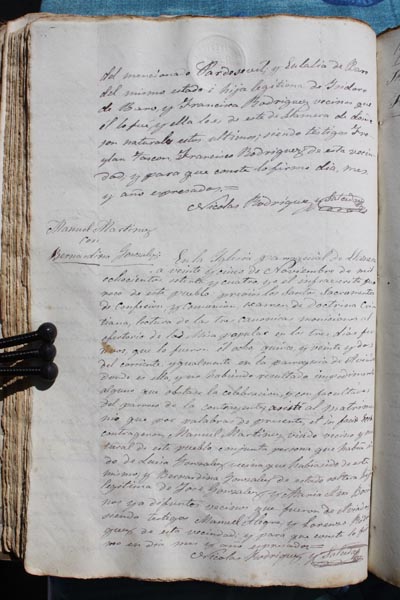 del menciona o Vardesovil, y Eulalia de Baro
del mismo estado é hija legitima de Isidoro
de Baro, y Francisca Rodriguez vecinos que
él lo fué, y ella lo es de este de
son naturales estos ultimos; siendo testigos Fro
ylan Pascon, Francisco Rodriguez, de esta vecin
dad, y para que conste lo firmo dia, mes
y año expresados.=
Nicolas Rodriguez, y
Manuel Martinez
con
Bernardina Gonzalez
En la Iglesia parroquial de
a veinte y cinco de Noviembre de mil
ochocientos setenta y cuatro yo el infrascrito pa
roco de este pueblo previos los santos sacramentos
de confesion, y comunion, examen de doctrina cris
tiana, lectura de las tres canonicas moniciones al
ofertorio de las Misas populares en los tres dias fes
tivos, que lo fueron el ocho, quince, y veinte y dos
del corriente, igualmente en la parroquia de
donde es ella, y no habiendo resultado impedimento
alguno que obstase la celebracion, y con facultad
del parroco de la contrayente, asistí al matrimo
nio que por palabras de presente, é in facie
contrageron, Manuel Martinez, viudo vecino y na
tural de este pueblo, conjunta persona que habia si
do de Lucia Gonzalez vecina que habia sido de este
mismo, y Bernardina Gonzalez de estado soltera hija
legitima de José Gonzalez, y Maria
ya difuntos vecinos que fueron de
siendo testigos Manuel Alegre, y Lorenzo Rodri
guez de esta vecindad, y para que conste lo fir
mo en dia mes y año expresados=
Nicolas Rodriguez, y